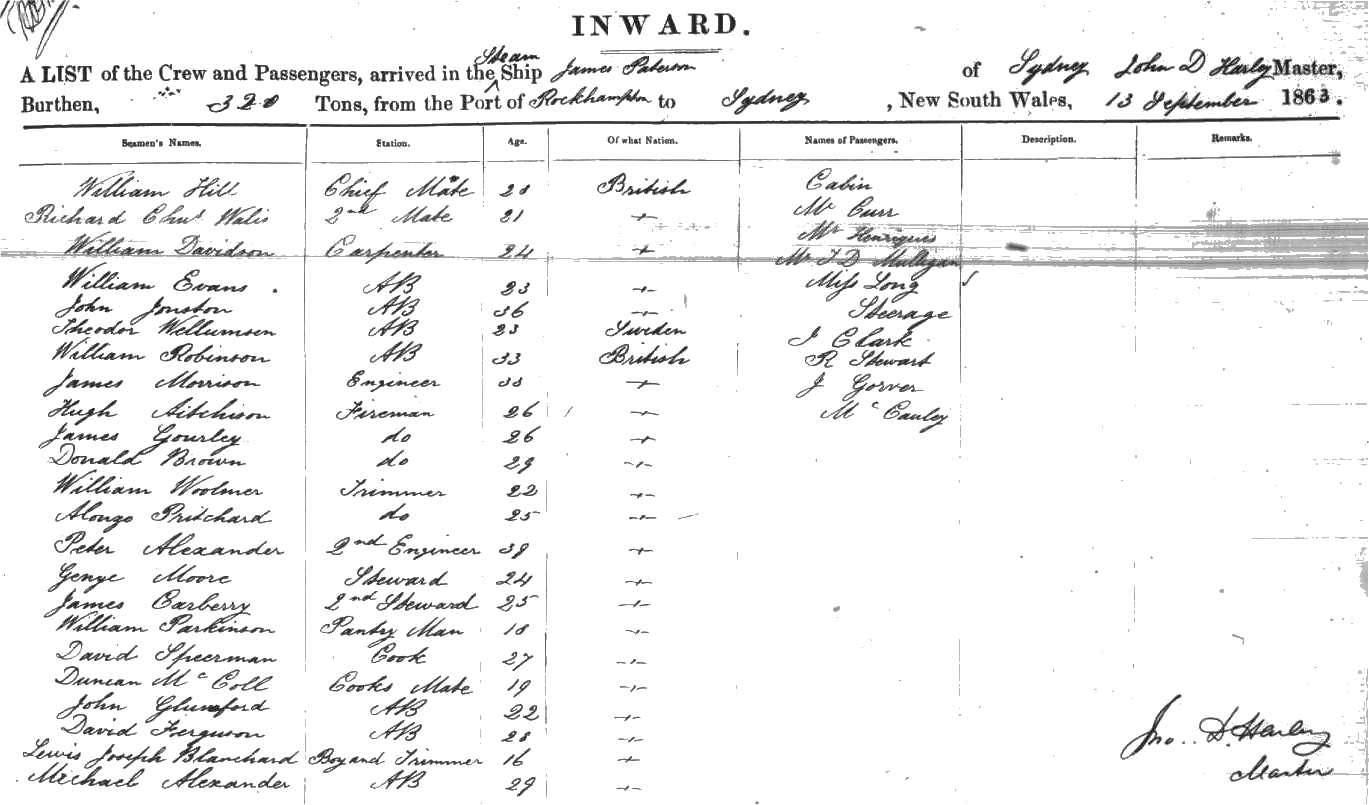 INWARD.
Steam
A LIST of the Crew and Passengers, arrived in the Ship James Paterson of Sydney John D Harley Master,
Burthen, 320 Tons, from the Port of Rockhampton to Sydney , New South Wales, 13 September 1863.
Seamen's Names. Station. Age. Of what Nation. Names of Passengers. Description. Remarks.
William Hill Chief Mate 28 British Cabin
Richard Chas Walis 2nd Mate 21 -"- Mr Curr
William Davidson Carpenter 24 -"- Mr Henriques
Mr T D Mulligan
William Evans AB 23 -"- Miss Long
John Jonston AB 36 -"- Steerage
Theodor Wellumsen AB 23 Sweden J Clark
William Robinson AB 33 British R Stewart
James Morrison Engineer 33 -"- J Gorver
Hugh Aitchison Fireman 26 -"- Mc Cauley
James Gourley do 26 -"-
Donald Brown do 29 -"-
William Woolmer Trimmer 22 -"-
Alonzo Pritchard do 25 -"-
Peter Alexander 2nd Engineer 39 -"-
George Moore Steward 24 -"-
James Carberry 2nd Steward 25 -"-
William Parkinson Pantry Man 18 -"-
David Speerman Cook 27 -"-
Duncan Mc Coll Cooks Mate 19 -"-
John Glunsford AB 22 -"-
David Ferguson AB 28 -"-
Lewis Joseph Blanchard Boy and Trimmer 16 -"-
Michael Alexander AB 29 -"-
Jno. D. Harley
Master